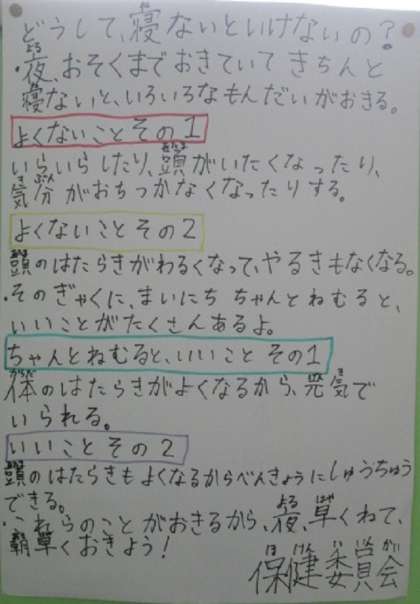 どうして、寝ないといけないの?
・夜、おそくまでおきていて きちんと
寝ないと、いろいろなもんだいがおきる。
よくないこと その1
いらいらしたり、頭がいたくなったり、
気分がおちつかなくなったりする。
よくないこと その2
頭のはたらきがわるくなって、やるきもなくなる。
・そのぎゃくに、まいにち ちゃんとねむると、
いいことがたくさんあるよ。
ちゃんとねむると、いいこと その1
体のはたらきがよくなるから、元気で
いられる。
いいこと その2
頭のはたらきも よくなるからべんきょうにしゅうちゅう
できる。
・これらのことがおきるから、夜、草くねて、
草くおきよう!
保健委員会